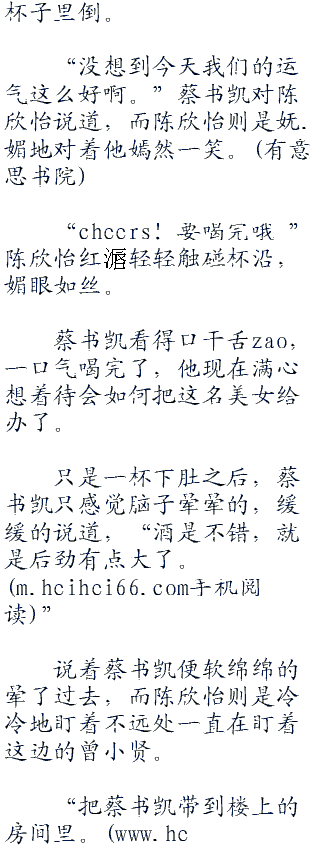 杯子里倒。
“没想到今天我们的运
气这么好啊。”蔡书凯对陈
欣怡说道，而陈欣怡则是妩.
媚地对着他嫣然一笑。(有意
思书院)
“cheers！要喝完哦 ”
陈欣怡红滣轻轻触碰杯沿，
媚眼如丝。
蔡书凯看得口干舌zao，
一口气喝完了，他现在满心
想着待会如何把这名美女给
办了。
只是一杯下肚之后，蔡
书凯只感觉脑子晕晕的，缓
缓的说道，“酒是不错，就
是后劲有点大了。
(m.hcihci66.com手机阅
读)”
说着蔡书凯便软绵绵的
晕了过去，而陈欣怡则是冷
冷地盯着不远处一直在盯着
这边的曾小贤。
“把蔡书凯带到楼上的
房间里。(www.hc